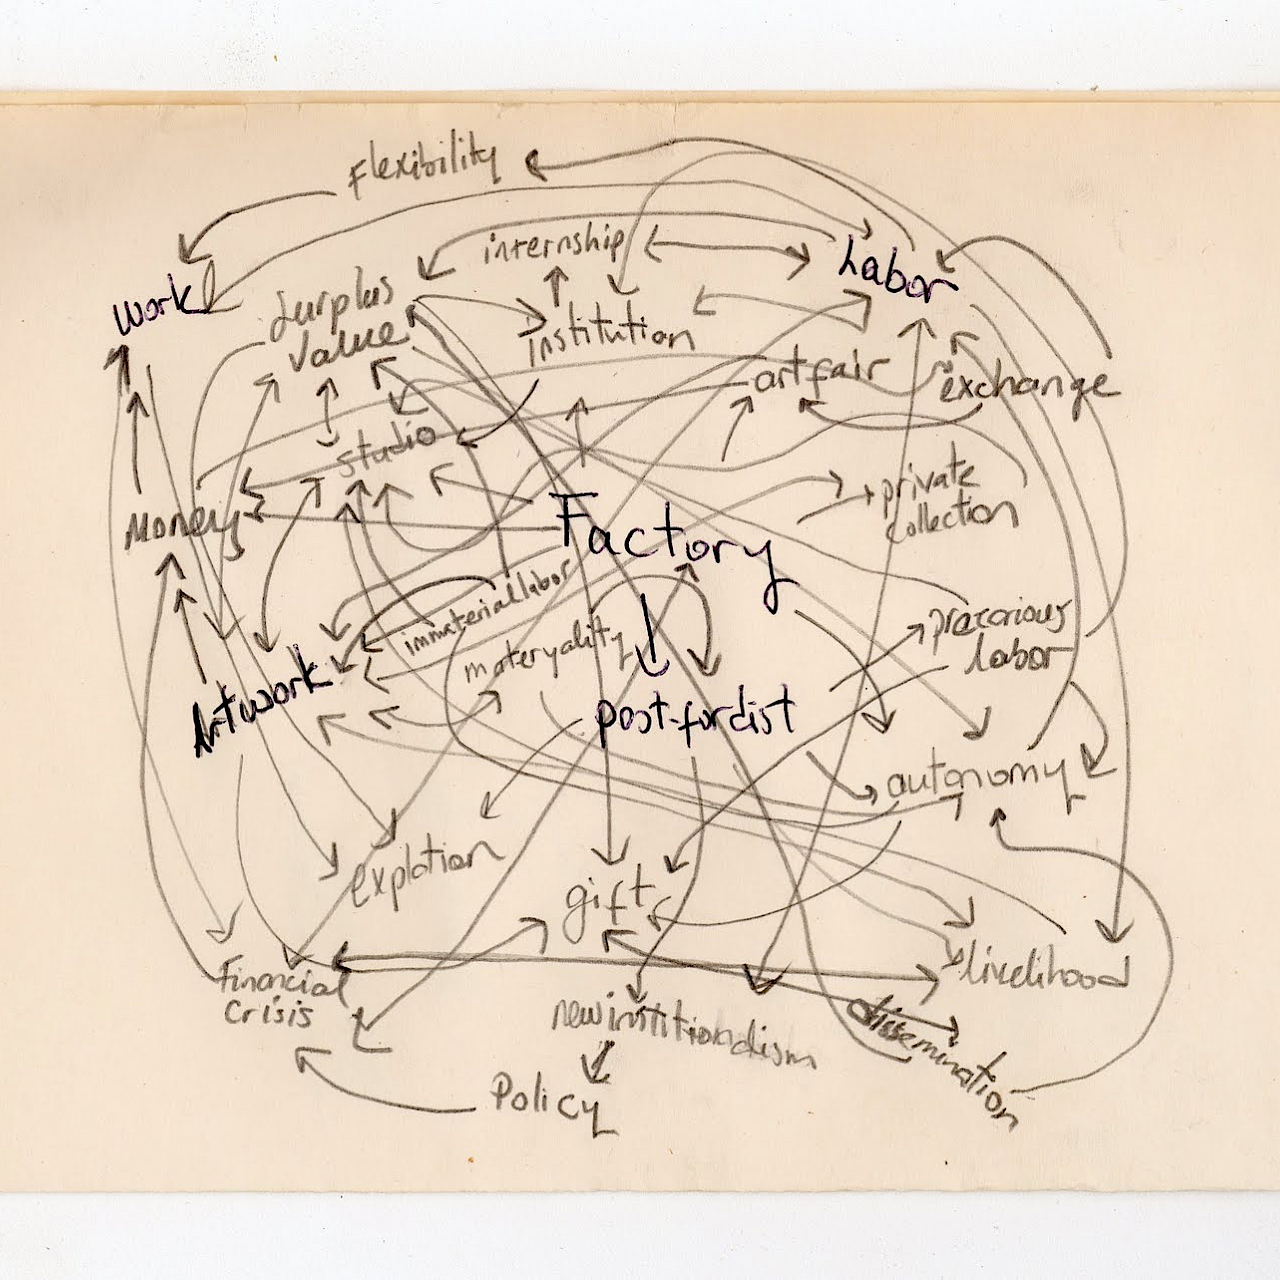 Flexibility
internship
Labor
work
Surplus
value
institution
artfair
exchange
studio
private
collection
Money
Factory
immaterial labor
materyality
precarious
labor
Artwork
post-fordist
autonomy
explotion
gift
Financial
crisis
livelihood
newinstitionalism
dissemination
Policy